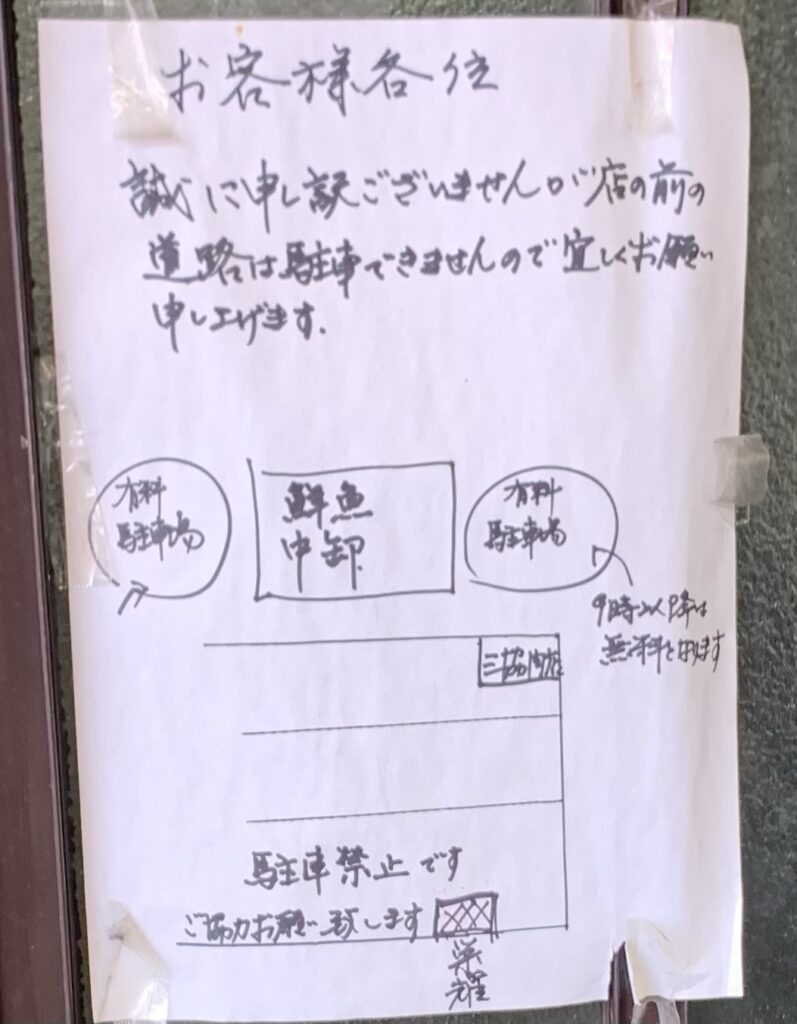 お客様各位
誠に申し訳ございませんが店の前の
道路は駐車できませんので宜しくお願い
申し上げます.
有料
駐車場
鮮魚
中卸
有料
駐車場
9時以降は
無料となります
三協商店
駐車禁止です
ご協力お願い致します
栄耀